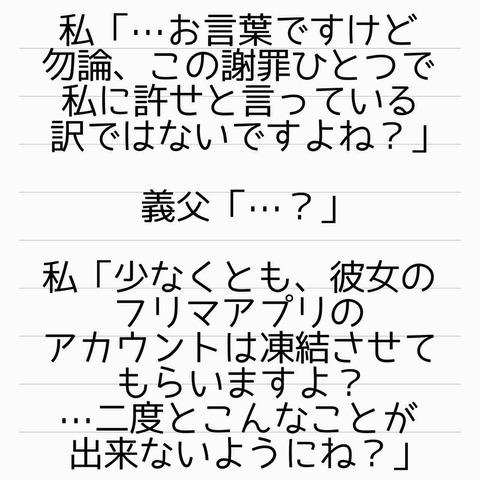 私「…お言葉ですけど
勿論、この謝罪ひとつで
私に許せと言っている
訳ではないですよね？」
義父「…？」
私「少なくとも、彼女の
フリマアプリの
アカウントは凍結させて
もらいますよ？
…二度とこんなことが
出来ないようにね？」